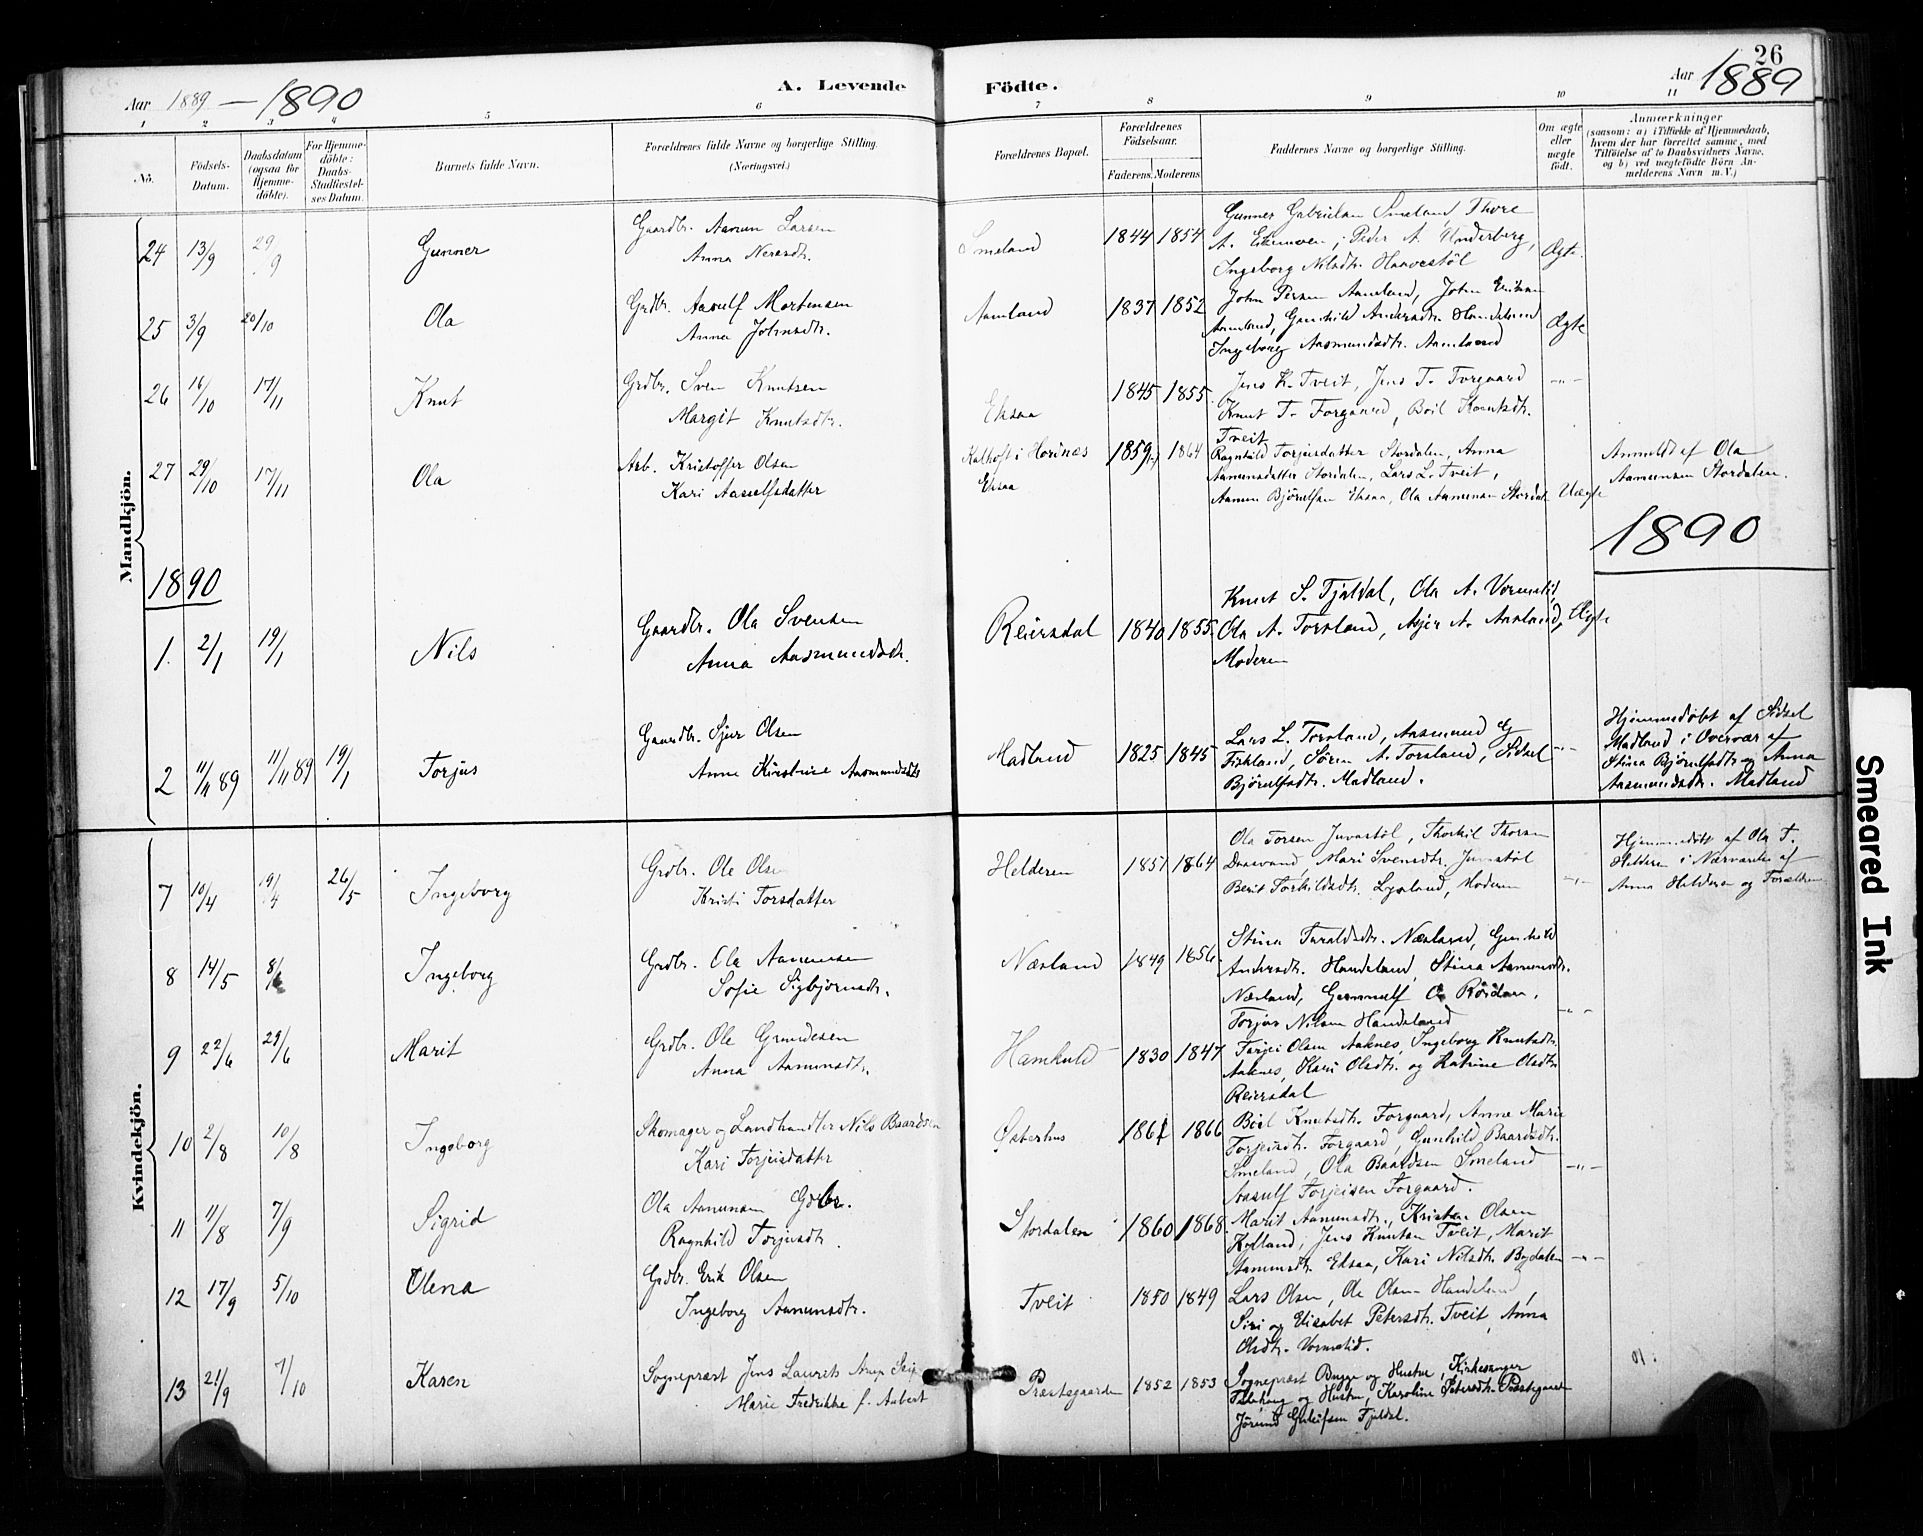 26
Aar 1889 — 1890
A. Levende
Födte.
Aar 1889
1 2 3 4 5 6 7 8 9 10 11
No.
Födsels-
Datum.
Daabsdatum
(ogsaa for
Hjemme-
döbte).
For Hjemme-
döbte:
Daabs-
Stadfæstel-
ses Datum.
Barnets fulde Navn.
Forældrenes fulde Navne og borgerlige Stilling.
(Næringsvei.)
Forældrenes Bopæl.
Forældrenes
Födselsaar.
Faderens. Moderens
Faddernes Navne og borgerlige Stilling.
Om ægte
eller
uægte
födt.
Anmærkninger
(saasom: a) i Tilfælde af Hjemmedaab,
hvem der har forrettet samme, med
Tilföielse af to Daabsvidners Navne.
og b) ved uægtefödte Börn An-
melderens Navn m. V.)
Mandkjön.
24 13/9 29/9 Gunner
Gaardbr. Aanun Larsen
Anna
Smeland 1844 1854
Gunner Gabrielsen Smeland, Thore
A. ; Peder A. Underberg,
Ingeborg Nilsdtr. Haavestöl
Ægte.
25 3/9 20/10 Ola
Grdbr. Aasulf Mortensen
Anna Johnsdtr.
Aamland 1837 1852
John Aamland, John Eriksen
Aamland, Gunhild Andersdtr. Handeland
Ingeborg Aasmundsdtr. Aamland
Ægte
26 16/10 17/11 Knut
Grdbr. Sven Knutsen
Margit Knutsdtr.
Eksaa 1845 1855
Jens K. Tveit, Jens T. Forgaard
Knut T. Forgaard, Boil Knutsdtr.
Tveit
-"-
27 29/10 17/11 Ola
Arb. Kristoffer Olsen
Kari Aasulfsdatter
Kalhoft i Horinæs
Eksaa
1859 1864
Ragnhild Torjusdatter Stordalen, Anna
Aanunsdatter Stordalen, Lars L. Tveit,
Aanun Björnsen Eksaa, Ola Aanunsen Stordal
Uægte
Anmeldt af Ola
Aanunsen Stordalen.
1890
1890
1. 2/1 19/1 Nils
Gaardbr. Ola Svensen
Anna Aasmundsdtr.
Reiersdal 1840 1855
Knut S. Fjeldal, Ola A. Vormelid,
Ola A. Torsland, Asjer A. Aasland,
Moderen
Ægte
2 11/11 89 11/11 89 19/1 Torjus
Gaardbr. Sjur Olsen
Anne Kirstine Aasmundsdtr
Madland 1825 1845
Lars L. Torsland, Aasmund G
Firkland, Sören A. Torsland, Sidsel
Björnulfsdtr. Madland.
-"-
Hjemmedöbt af Sidsel
Madland i Overvær af
Stina Björnulfsdtr og Anna
Aasmundsdtr. Madland
Kvindekjön.
7 10/4 19/4 26/5 Ingeborg
Grdbr. Ole Olsen
Kristi Torsdatter
Helderen 1857 1864
Ola Torsen Juvastöl, Thorkil Thorsen
Daasvand, Mari Svensdtr. Juvastöl
Berit Torkildsdtr. Lysland, Moderen
-"-
Hjemmedöbt af Ola T.
Helderen i Nærværelse af
Anna Helderen og Forældrene
8 14/5 8/6 Ingeborg
Grdbr. Ola Aanunsen
Sofie Sigbjörnsdtr.
Næsland 1849 1856
Stina Taraldsdtr. Næsland, Gunhild
Andersdtr. Handeland, Stina Aanunsdtr.
Næsland, Gunnulf O. Röisland,
Torjus Nilsen Handeland
-"-
9 22/6 29/6 Marit
Grdbr. Ole Gundesen
Anna Aanunsdtr.
Hamkold 1830 1847
Torjei Olsen Aaknes, Ingeborg Knutsdtr.
Aaknes, Kari Olsdtr. og Katrine Olsdtr.
Reiersdal
10 2/8 10/8 Ingeborg
Skomager og Landhandler Nils Baardsen
Kari Torjeisdatter
Österhus 1861 1866
Boil Knutsdtr. Forgaard, Anne Marie
Torjeisdtr. Forgaard, Gunhild Baardsdtr.
Smeland, Ola Baardsen Smeland
Aasulf Torjeisen Forgaard.
-"-
11 11/8 7/9 Sigrid
Ola Aanunsen Grdbr.
Ragnhild Torjusdtr.
Stordalen 1860 1868.
Marit Aanunsdtr., Kristen Olsen
Kylland, Jens Knutsen Tveit, Marit
Aanunsdtr. Eksaa, Kari Nilsdtr. Bydalen
-"-
12 17/9 5/10 Olena
Grdbr. Erik Olsen
Ingeborg Aanunsdtr.
Tveit 1850 1849
Lars Olsen, Ole Olsen Handeland,
Siri og Elisabet Petersdtr. Tveit, Anna
Olsdtr. Vormelid.
13 21/9 7/10 Karen
Sogneprest Jens Laurits Arup Seip
Marie Fredrikke f. Aubert
Præstegaarden 1852 1853
Sogneprest Bugge og Hustru, Kirkesanger
og Hustru, Karoline Petersdtr. Præstegaarden
Jörund Fjeldal.
Smeared Ink